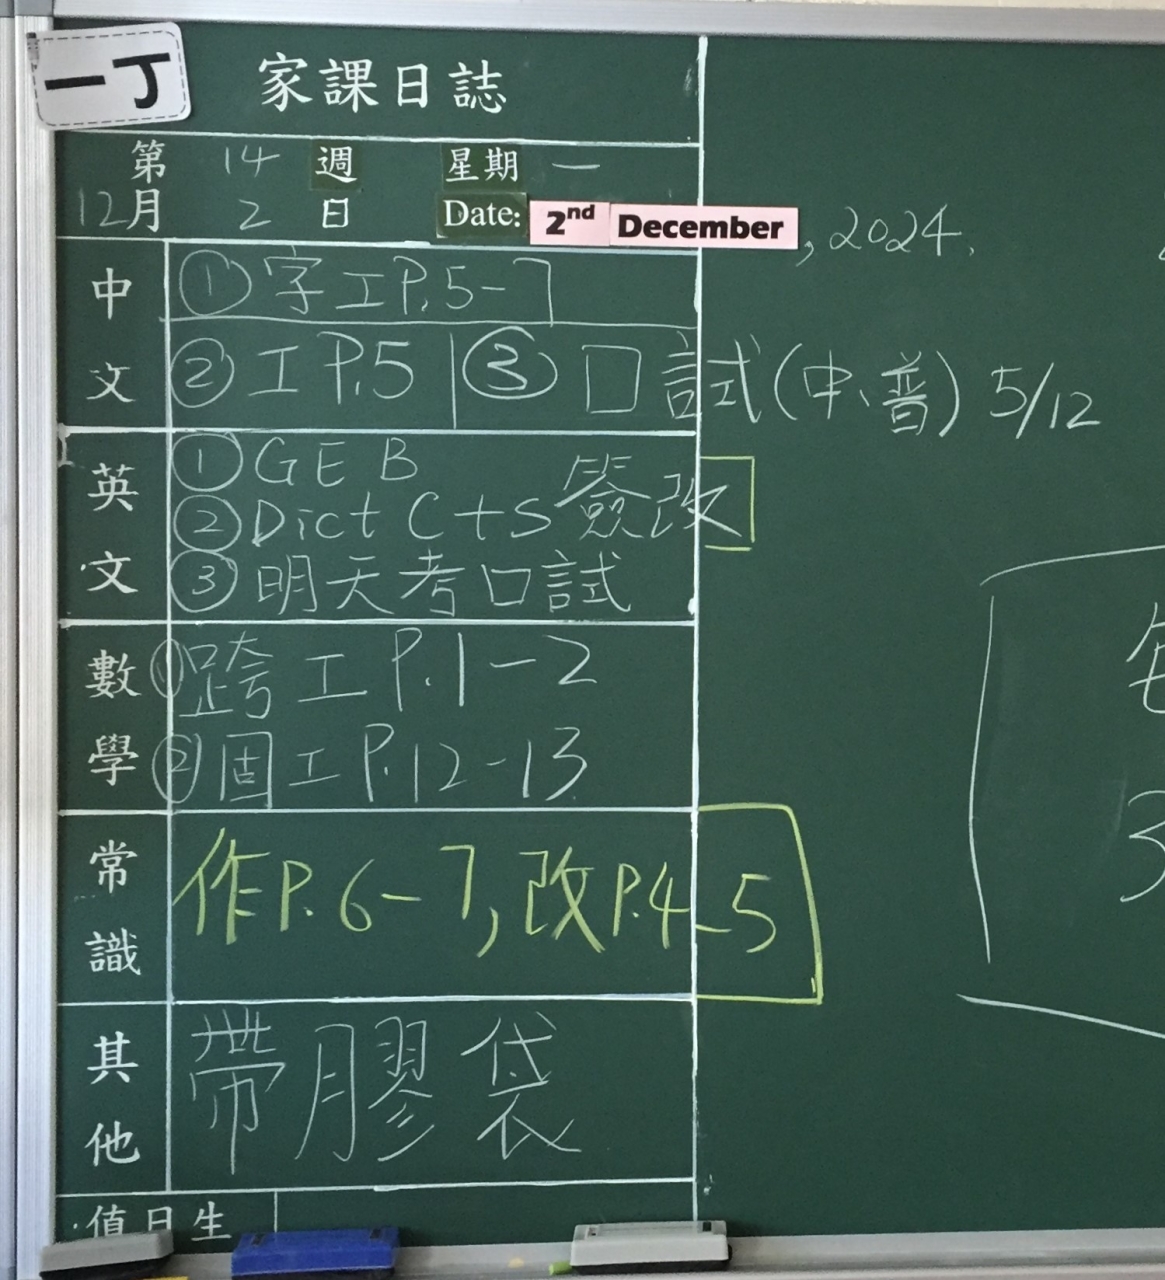 一丁
家課日誌
第 14 週 星期 一
12月 2 日 Date: 2nd December, 2024.
中文
①字工P.5-7
②工P.5 ③口試(中、普) 5/12
英文
①GE B
②Dict C+S 簽改
③明天考口試
數學
①跨工P.1-2
②固工P.12-13
常識
作P.6-7,改P.4-5
其他
帶膠袋
值日生
3